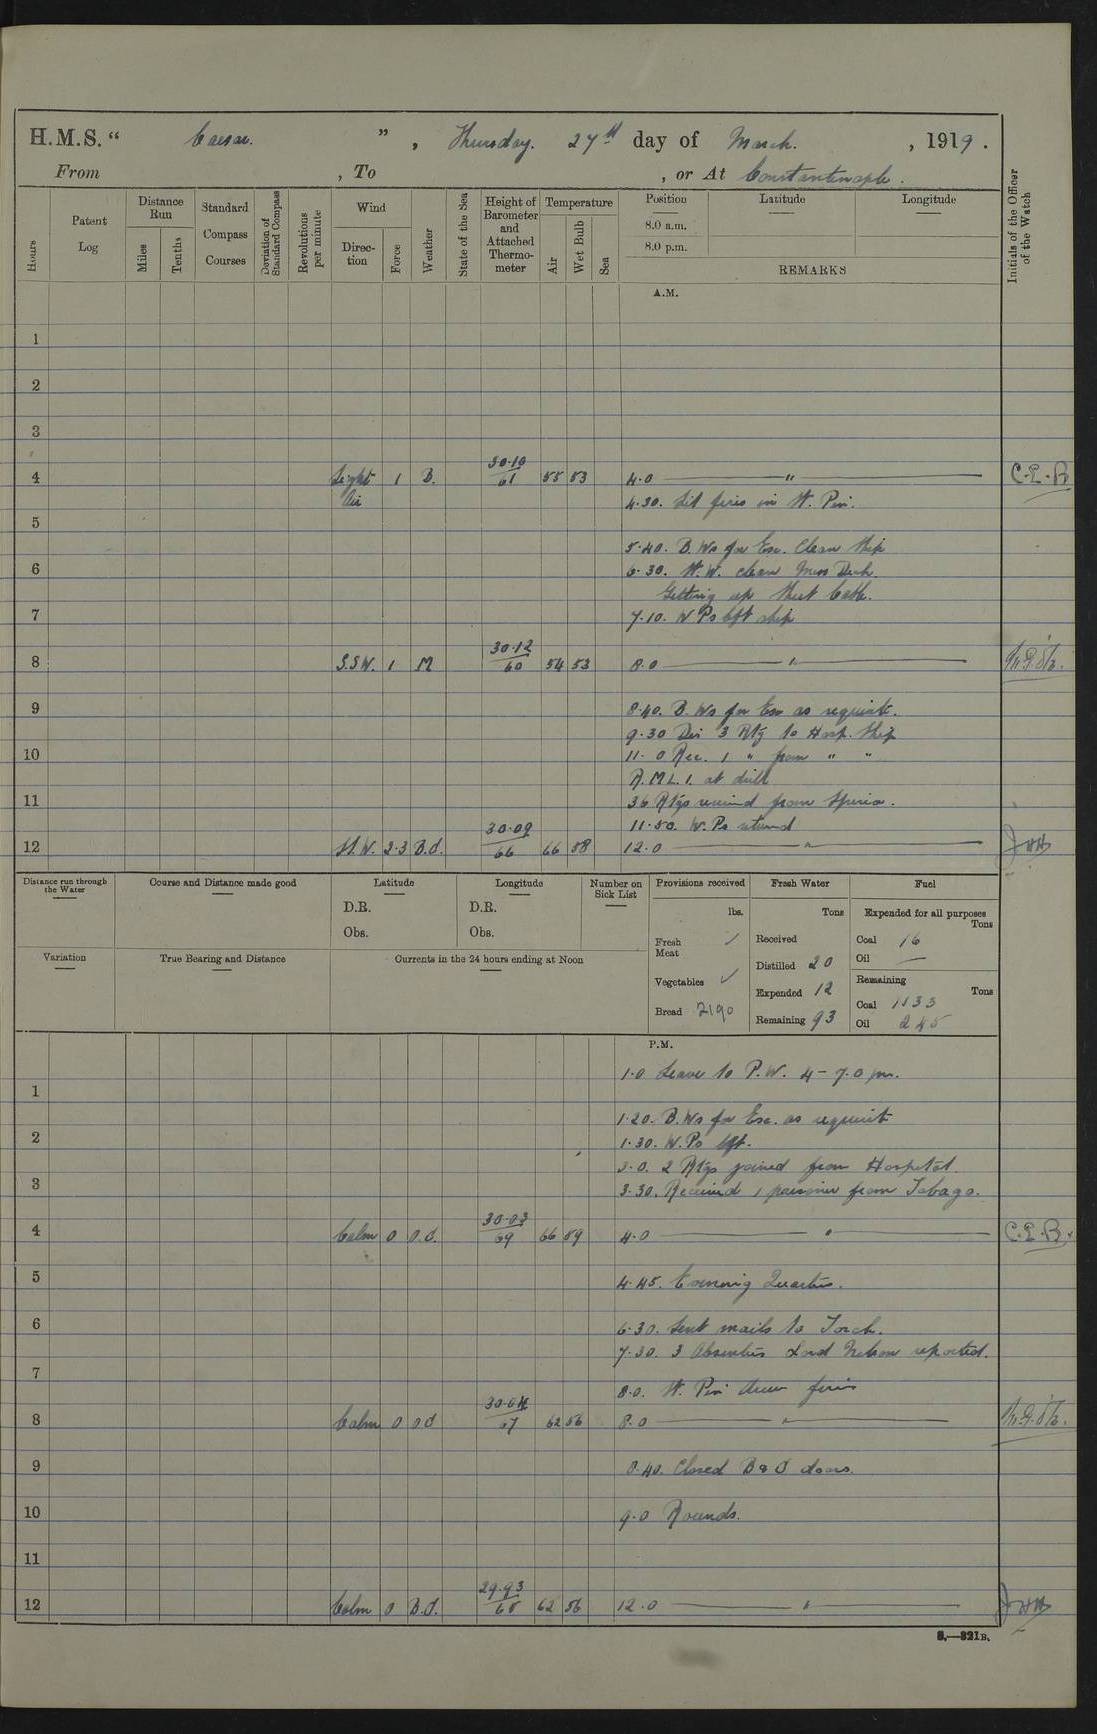 H.M.S. “ Caesar. ” , Thursday. 27th day of March. , 1919.
From , To , or At Constantinople.
Hours
Patent Log
Distance Run
Miles
Tenths
Standard Compass Courses
Deviation of Standard Compass
Revolutions per minute
Wind
Direction
Force
Weather
State of the Sea
Height of Barometer and Attached Thermometer
Temperature
Air
Wet Bulb
Sea
Position
8.0 a.m.
8.0 p.m.
Latitude
Longitude
REMARKS
Initials of the Officer of the Watch
A.M.
1
2
3
4 Light Air 1 B. 30·10 61 55 53 4.0 " C.E.B
4.30. Lit fires in St. Pin.
5
5.40. B.Ws for Esc. Clean Ship
6 6.30. H.W. clean Mess Deck.
Getting up Sheet Cable.
7 7.10. W Ps left ship
8 S.S.W. 1 M 30·12 60 54 53 8.0 "
9 8.40. B. Ws for Esc as requisite.
9.30 Dis 3 Rtgs to Hosp. Ship
10 11.0 Rec. 1 " from " "
R.M.L.I. at drill
11 36 Rtgs received from Iberia.
11.50. W.Ps returned
12 S.W. 2-3 B.C. 30·09 66 66 58 12.0 "
Distance run through the Water
Course and Distance made good
Latitude
D.R.
Obs.
Longitude
D.R.
Obs.
Number on Sick List
Provisions received
lbs.
Fresh Meat ✓
Vegetables ✓
Bread 2190
Fresh Water
Tons
Received
Distilled 20
Expended 12
Remaining 93
Fuel
Expended for all purposes
Tons
Coal 16
Oil —
Remaining
Tons
Coal 1133
Oil 245
Variation
True Bearing and Distance
Currents in the 24 hours ending at Noon
P.M.
1.0 Leave to P.W. 4 - 7.0 pm.
1
1.20. B.Ws for Esc. as requisite
2 1.30. W.Ps left.
3.0. 2 Rtgs joined from Hospital.
3 3.30. Received 1 prisoner from Tobago.
4 Calm 0 O.C. 30·03 69 66 59 4.0 " C.E.B.
5 4.45. Evening Quarters.
6 6.30. Sent mails to Torch.
7.30. 3 Absentees Lord Nelson reported.
7
8.0. St. Pin drew fires
8 Calm 0 O C 30·04 67 62 56 8.0 "
9 8.40. Closed B & D doors.
10 9.0 Rounds.
11
12 Calm 0 B.C. 29·93 65 62 56 12.0 "
S.—321B.